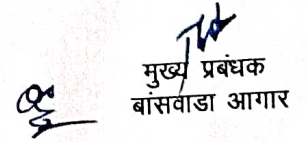 मुख्य प्रबंधक
बांसवाडा आगार